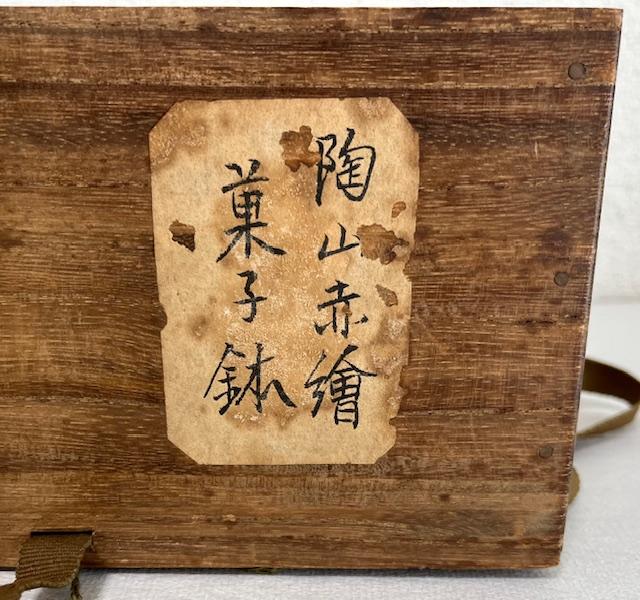 陶山赤繪
菓子鉢